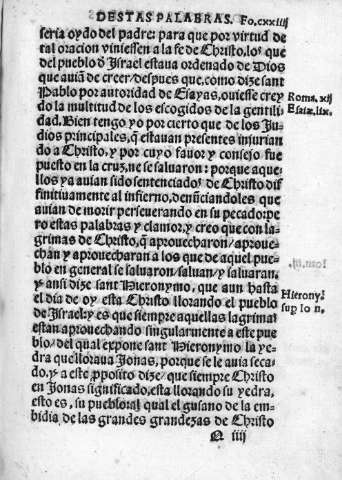 DESTAS PALABRAS. Fo.cxxiiij
seria oydo del padre: para que por virtud de
tal oracion viniessen a la fe de Christo, los que
del pueblo d̃ Israel estaua ordenado de Dios
que auiã de creer/despues que, como dize sant
Pablo por autoridad de Esayas, ouiesse crey
do la multitud de los escogidos de la gentili
dad. Bien tengo yo por cierto que de los Ju
dios principales, q̃ estauan presentes injurian
do a Christo, y por cuyo fauor y consejo fue
puesto en la cruz, ne se saluaron: porque aque
llos ya auian sido sentenciados de Christo dif
finitiuamente al infierno, denũciandoles que
auian de morir perseuerando en su pecado: pe
ro estas palabras y clamor, y creo que con la
grimas de Christo, q̃ aprouecharon/aproue
chan y aprouecharan a los que de aquel pue
blo en general se saluaron/saluan/y saluaran.
y ansi dize sant Hieronymo, que aun hasta
el dia de oy esta Christo llorando el pueblo
de Israel: y es que siempre aquellas lagrimas
estan aprouechando singularmente a este pue
blo/del qual expone sant Hieronymo la ye-
dra que lloraua Jonas, porque se le auia seca-
do. y a este p̃posito dize/que siempre Christo
en Jonas significado, esta llorando su yedra,
esto es, su pueblo: al qual el gusano de la em-
bidia de las grandes grandezas de Christo
Roma. xij
Esaiæ. lix.
Hierony.
sup Io n.
Q iiij